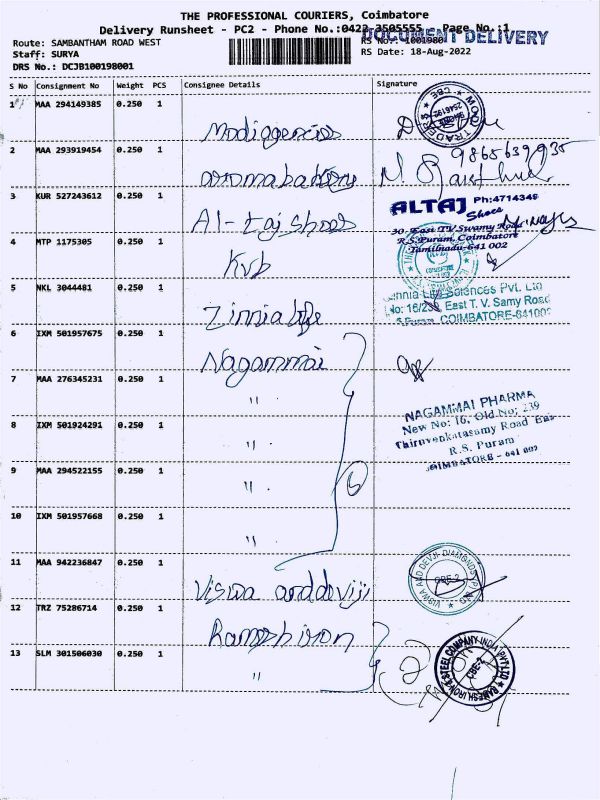 THE PROFESSIONAL COURIERS, Coimbatore
Delivery Runsheet - PC2 - Phone No.:0422-3505555 Page No.:1
DOCUMENT DELIVERY
Route: SAMBANTHAM ROAD WEST
RS No.: 1001980
Staff: SURYA
RS Date: 18-Aug-2022
DRS No.: DCJB100198001
S No Consignment No Weight PCS Consignee Details Signature
1 MAA 294149385 0.250 1
Modiagencies
2 MAA 293919454 0.250 1
9865639935
aromabakery
3 KUR 527243612 0.250 1
ALTAJ Shoes Ph:4714349
Al-taj shoes
30, East T.V. Swamy Road
R.S. Puram, Coimbatore
Tamilnadu-641 002
4 MTP 1175305 0.250 1
Kvb
5 NKL 3044481 0.250 1
Zinnia life
Zinnia Life Sciences Pvt. Ltd
No: 16/239, East T. V. Samy Road
R.S. Puram, COIMBATORE-641002
6 IXM 501957675 0.250 1
Nagammai
7 MAA 276345231 0.250 1
"
NAGAMMAI PHARMA
New No: 16, Old No: 239
Thiruvenkatasamy Road East
R.S. Puram
COIMBATORE - 641 002
8 IXM 501924291 0.250 1
"
9 MAA 294522155 0.250 1
"
10 IXM 501957668 0.250 1
"
11 MAA 942236847 0.250 1
Viswa anddeviji
VISWA AND DEVJI DIAMONDS P. LTD
CBE-2
12 TRZ 75286714 0.250 1
Ramesh iron
13 SLM 301506030 0.250 1
"
RAMESH IRON & STEEL COMPANY INDIA (P) LTD
CBE-2